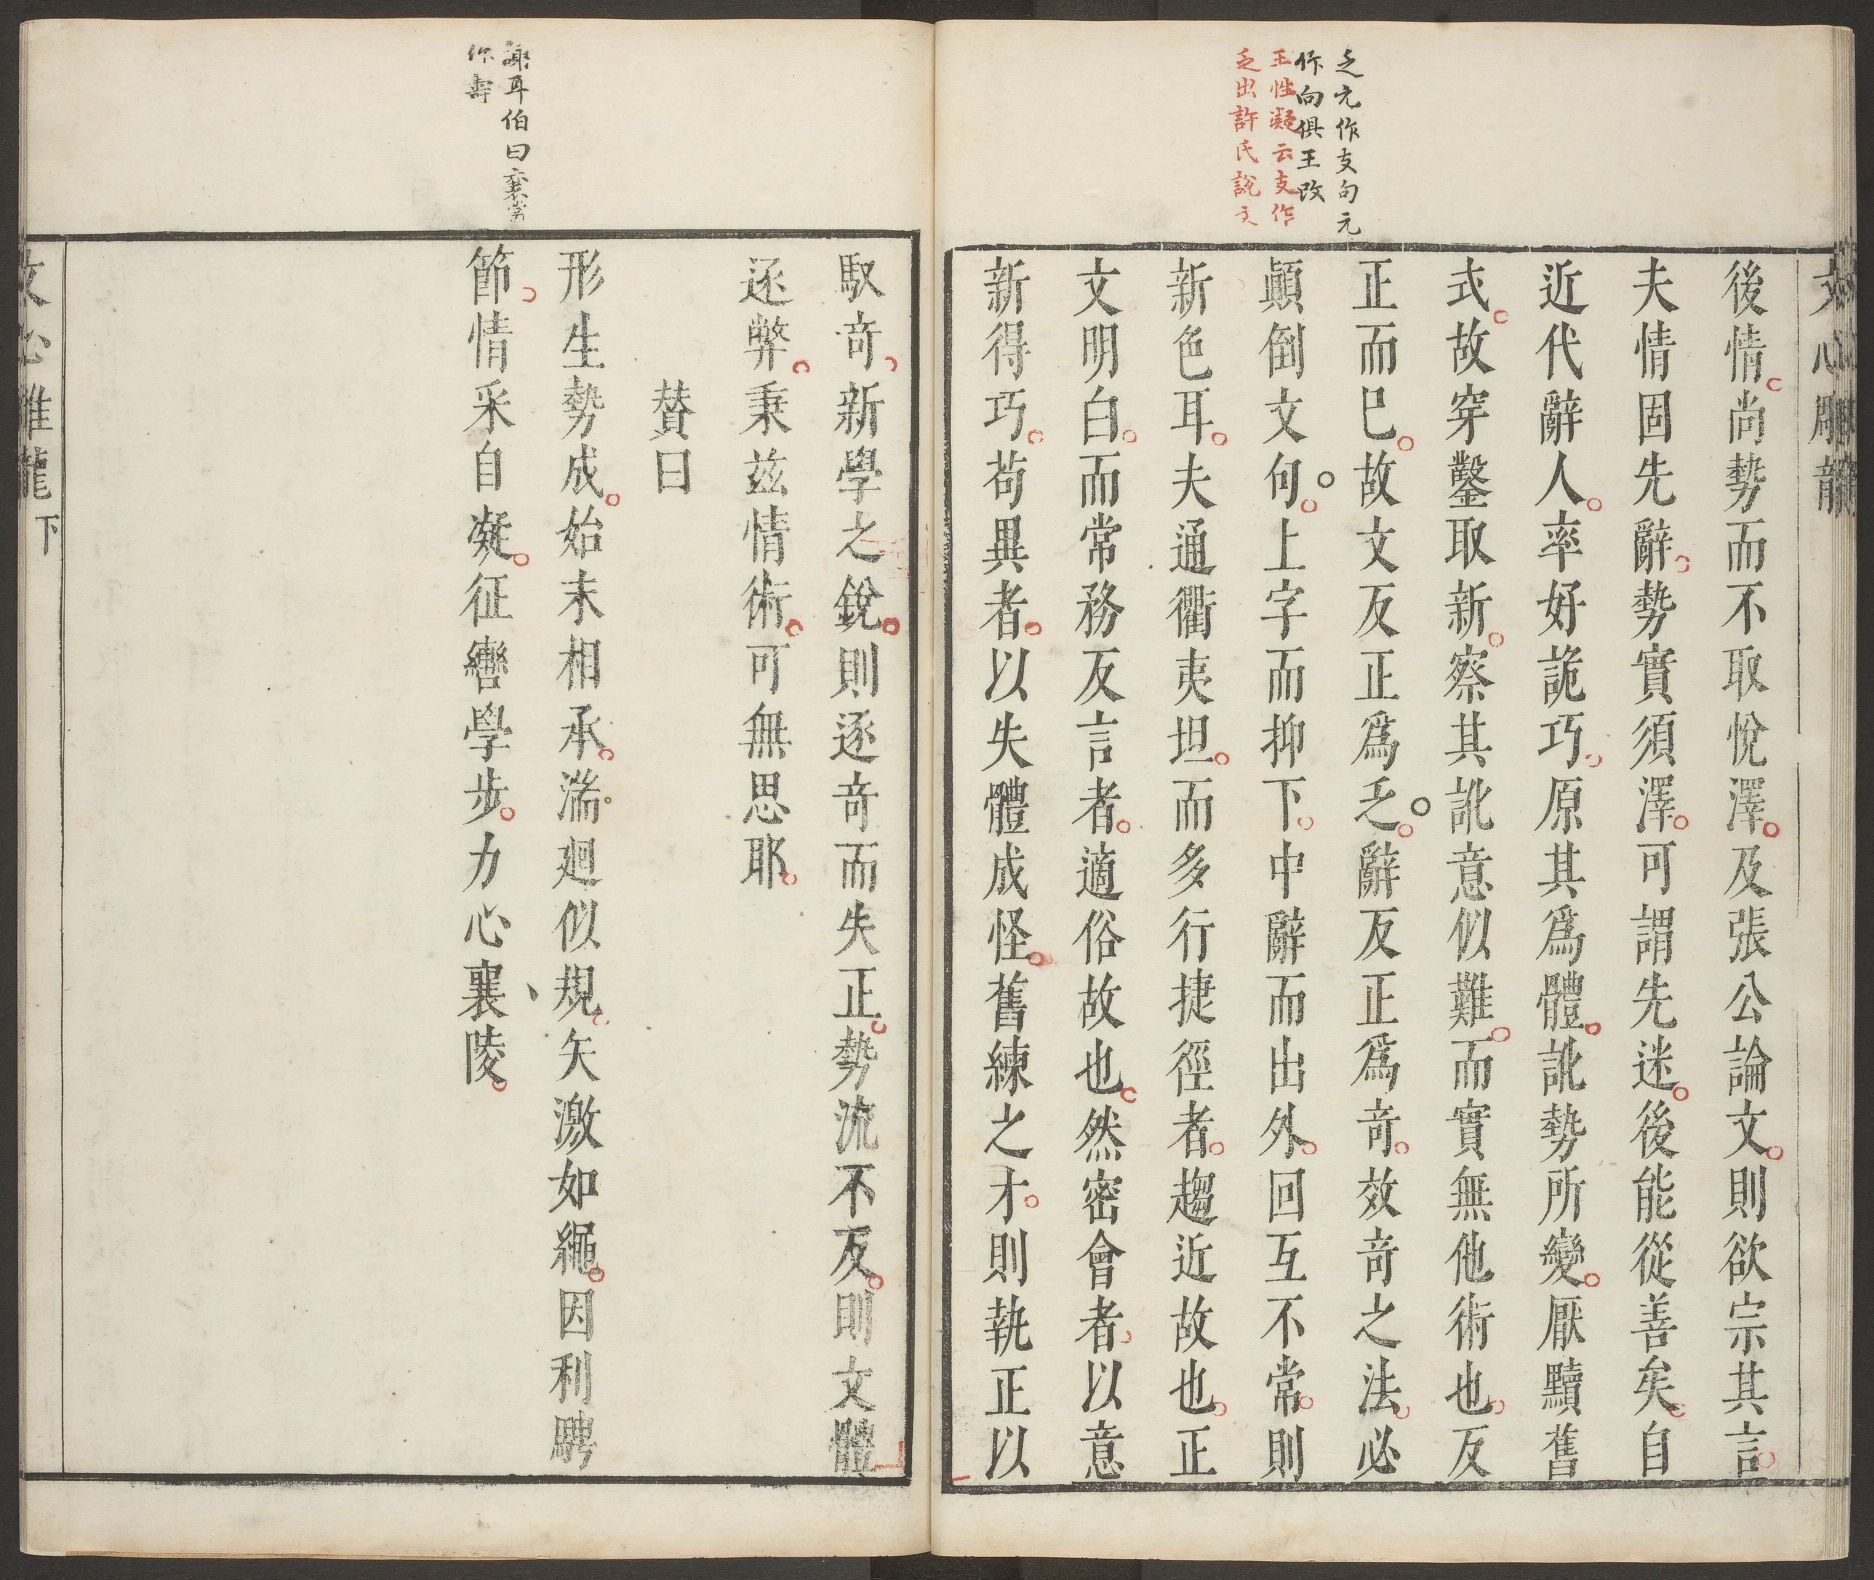 文心雕龍
乏元作支句元
作向俱王改
王性凝云支作
乏出許氏說文
後情尚勢而不取悅澤及張公論文則欲宗其言
夫情固先辭勢實須澤可謂先迷後能從善矣自
近代辭人率好詭巧原其爲體訛勢所變厭黷舊
式故穿鑿取新察其訛意似難而實無他術也反
正而已故文反正爲乏辭反正爲竒效竒之法必
顛倒文句上字而抑下中辭而出外回互不常則
新色耳夫通衢夷坦而多行捷徑者趨近故也正
文明白而常務反言者適俗故也然密會者以意
新得巧茍異者以失體成怪舊練之才則執正以
謝耳伯曰襄當
作壽
馭竒新學之銳則逐竒而失正勢流不反則文體
逐弊秉茲情術可無思耶
賛曰
形生勢成始末相承湍廻似規矢激如繩因利騁
節情采自凝征轡學步力心襄陵
文心雕龍 下